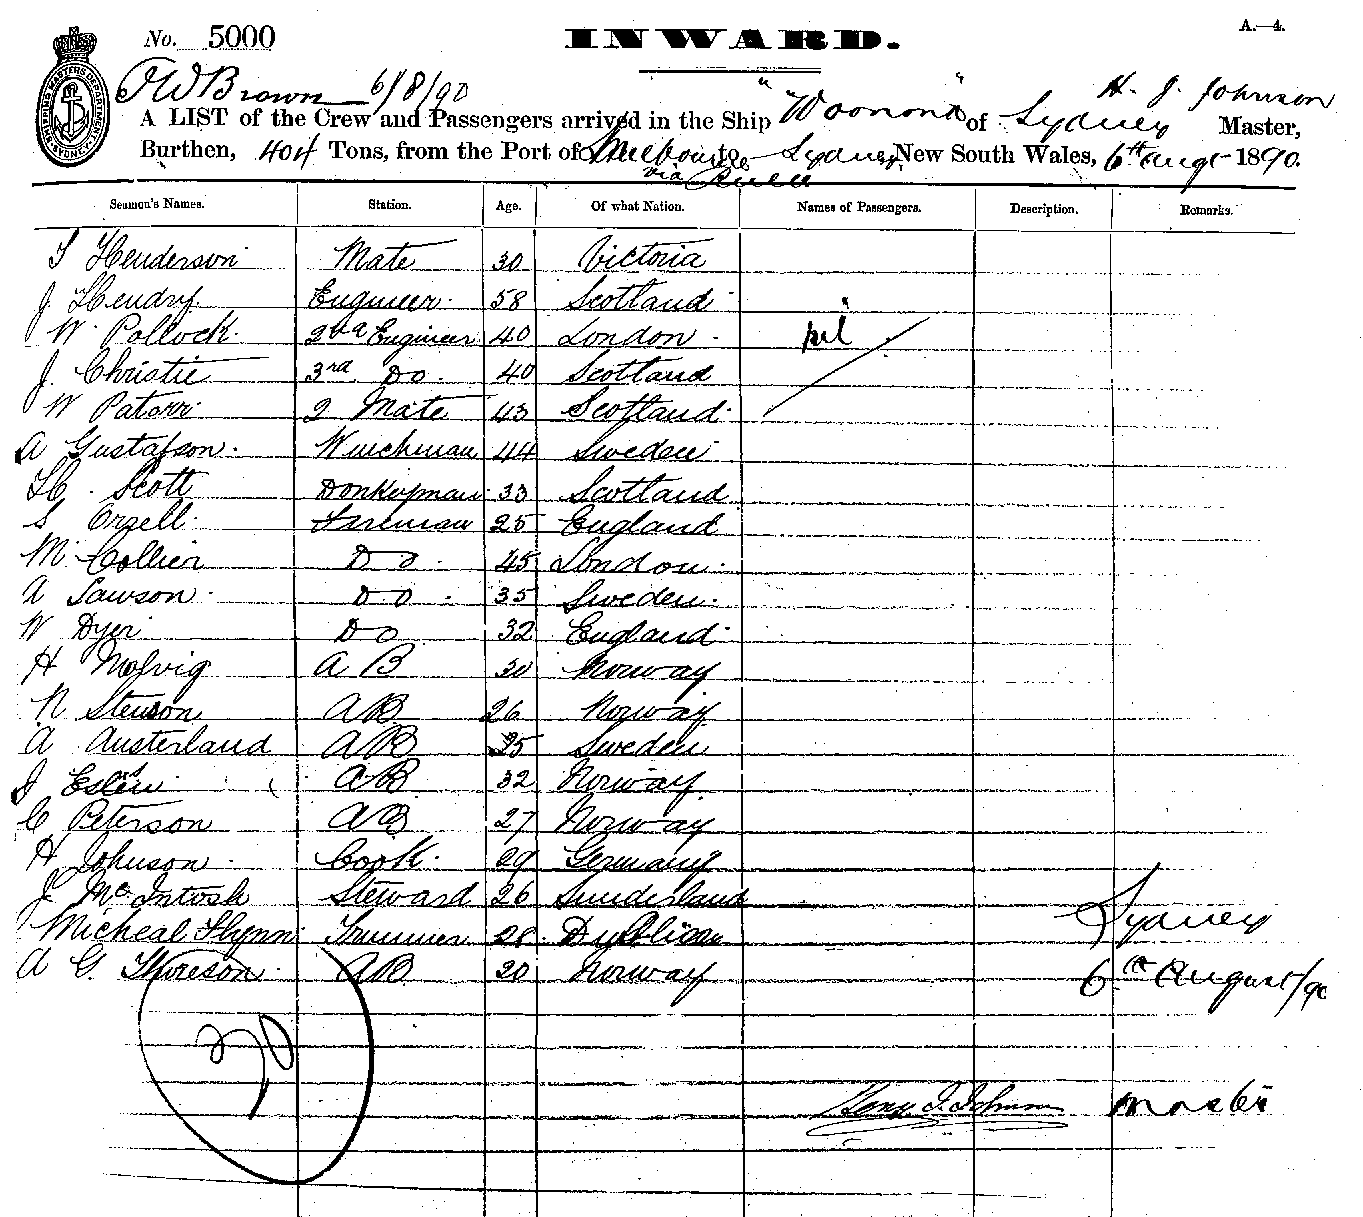 No. 5000
INWARD.
A.—4.
SHIPPING MASTERS DEPARTMENT SYDNEY
J W Brown 6/8/90
A LIST of the Crew and Passengers arrived in the Ship "Woonona" of Sydney H. J. Johnson Master,
Burthen, 404 Tons, from the Port of Melbourne to Sydney New South Wales, 6th Augt 1890.
via
Seamen's Names. Station. Age. Of what Nation. Names of Passengers. Description. Remarks.
Henderson Mate 30 Victoria
J Hendry Engineer 58 Scotland
W. Pollock 2nd Engineer 40 London nil
J. Christie 3rd Do 40 Scotland
W 2 Mate 43 Scotland
A Gustafson Winchman 44 Sweden
H. Scott Donkeyman 33 Scotland
S Orzell Fireman 25 England
M Collier Do 45 London
A Lawson Do 35 Sweden
W Dyer Do 32 England
H A B 30 Norway
N Stenson AB 26 Norway
A Austerland AB 35 Sweden
AB 32 Norway
C Peterson AB 27 Norway
H Johnson Cook 29 Germany
J McIntosh Steward 26 Sunderland Sydney
Micheal Flynn Trimmer 28 6th August/90
A G. AB 20 Norway
20
Henry J. Johnson Master